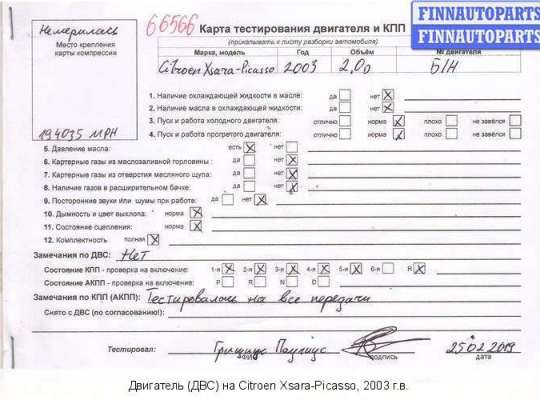 Немерилась
Место крепления
карты компрессии
194035 МРН
66566 Карта тестирования двигателя и КПП
FINNAUTOPARTS
FINNAUTOPARTS
(прикалывать к листу разборки автомобиля)
Марка, модель Год Объем № двигателя
Citroen Xsara-Picasso 2003 2,0д Б/Н
1. Наличие охлаждающей жидкости в масле: да нет X
2. Наличие масла в охлаждающей жидкости: да нет X
3. Пуск и работа холодного двигателя: отлично норма X плохо не завёлся
4. Пуск и работа прогретого двигателя: отлично норма X плохо не завёлся
5. Давление масла: есть X нет
6. Картерные газы из маслозаливной горловины: да нет X
7. Картерные газы из отверстия масляного щупа: да нет X
8. Наличие газов в расширительном бачке: да нет X
9. Посторонние звуки или шумы при работе: да нет X
10. Дымность и цвет выхлопа: норма X
11. Состояние сцепления: норма X
12. Комплектность полная X
Замечания по ДВС: Нет
Состояние КПП - проверка на включение: 1-я X 2-я X 3-я X 4-я X 5-я X 6-я R X
Состояние АКПП - проверка на включение: P R N D
Замечания по КПП (АКПП): Тестировалось на все передачи
Снято с ДВС (по согласованию!):
Тестировал: подпись 25.02.2019
дата
Двигатель (ДВС) на Citroen Xsara-Picasso, 2003 г.в.